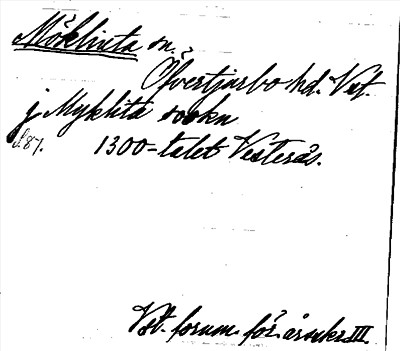 Möklinta sn.
Öfvertjurbo hd. Vst.
j Myklita sookn
S. 87. 1300-talet Vesterås.
Vst. fornm. för. årsskr. III.